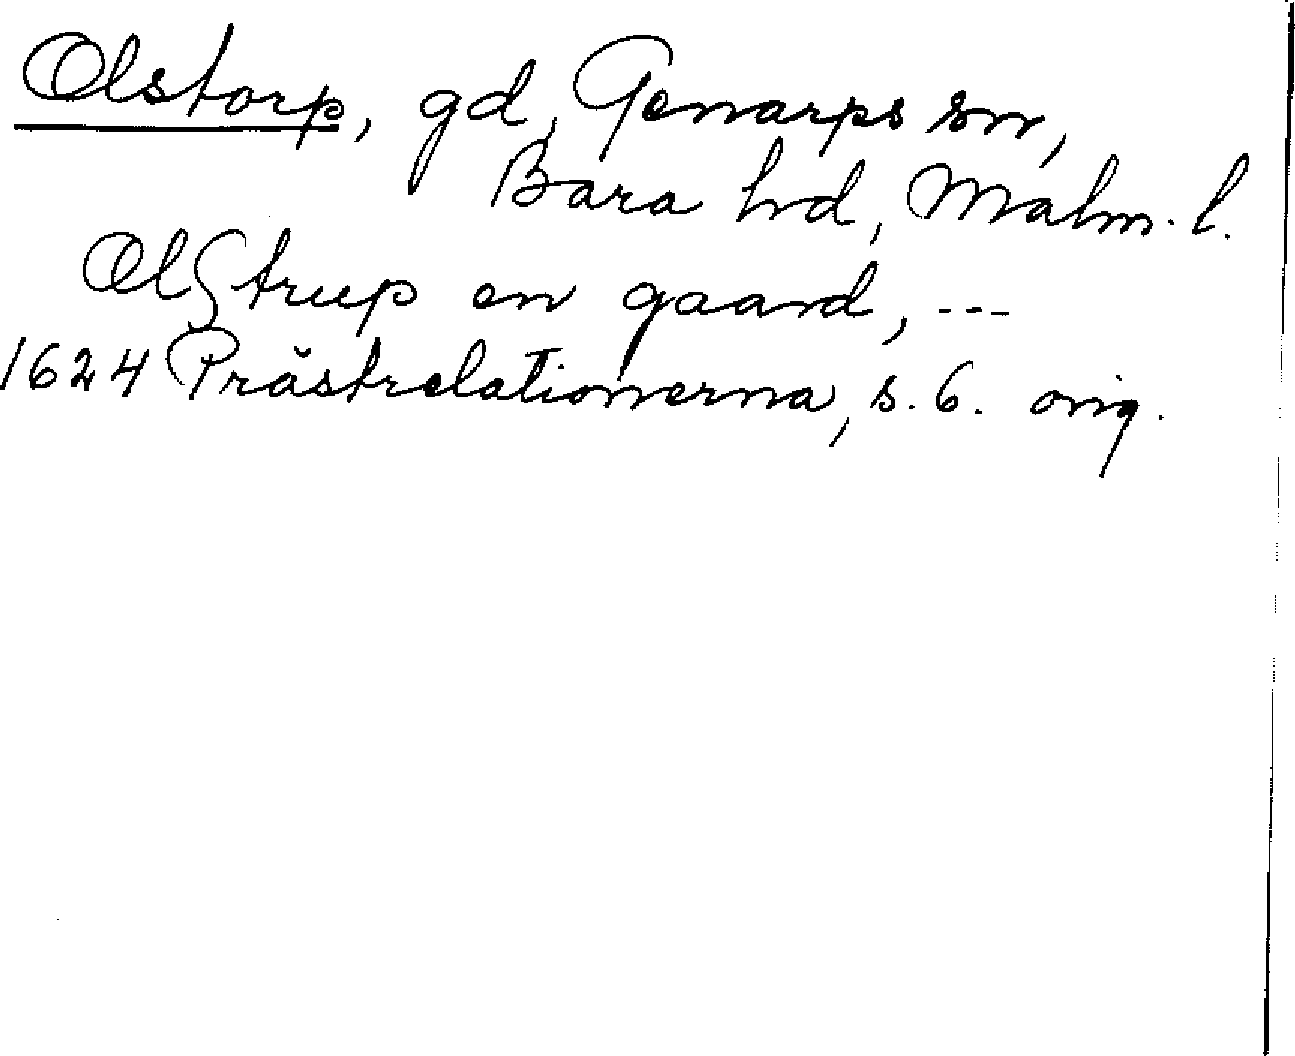 Olstorp, gd, Genarps sn,
Bara hd, Malm. l.
Olstrup en gaard, ---
1624 Prästrelationerna, s. 6. orig.